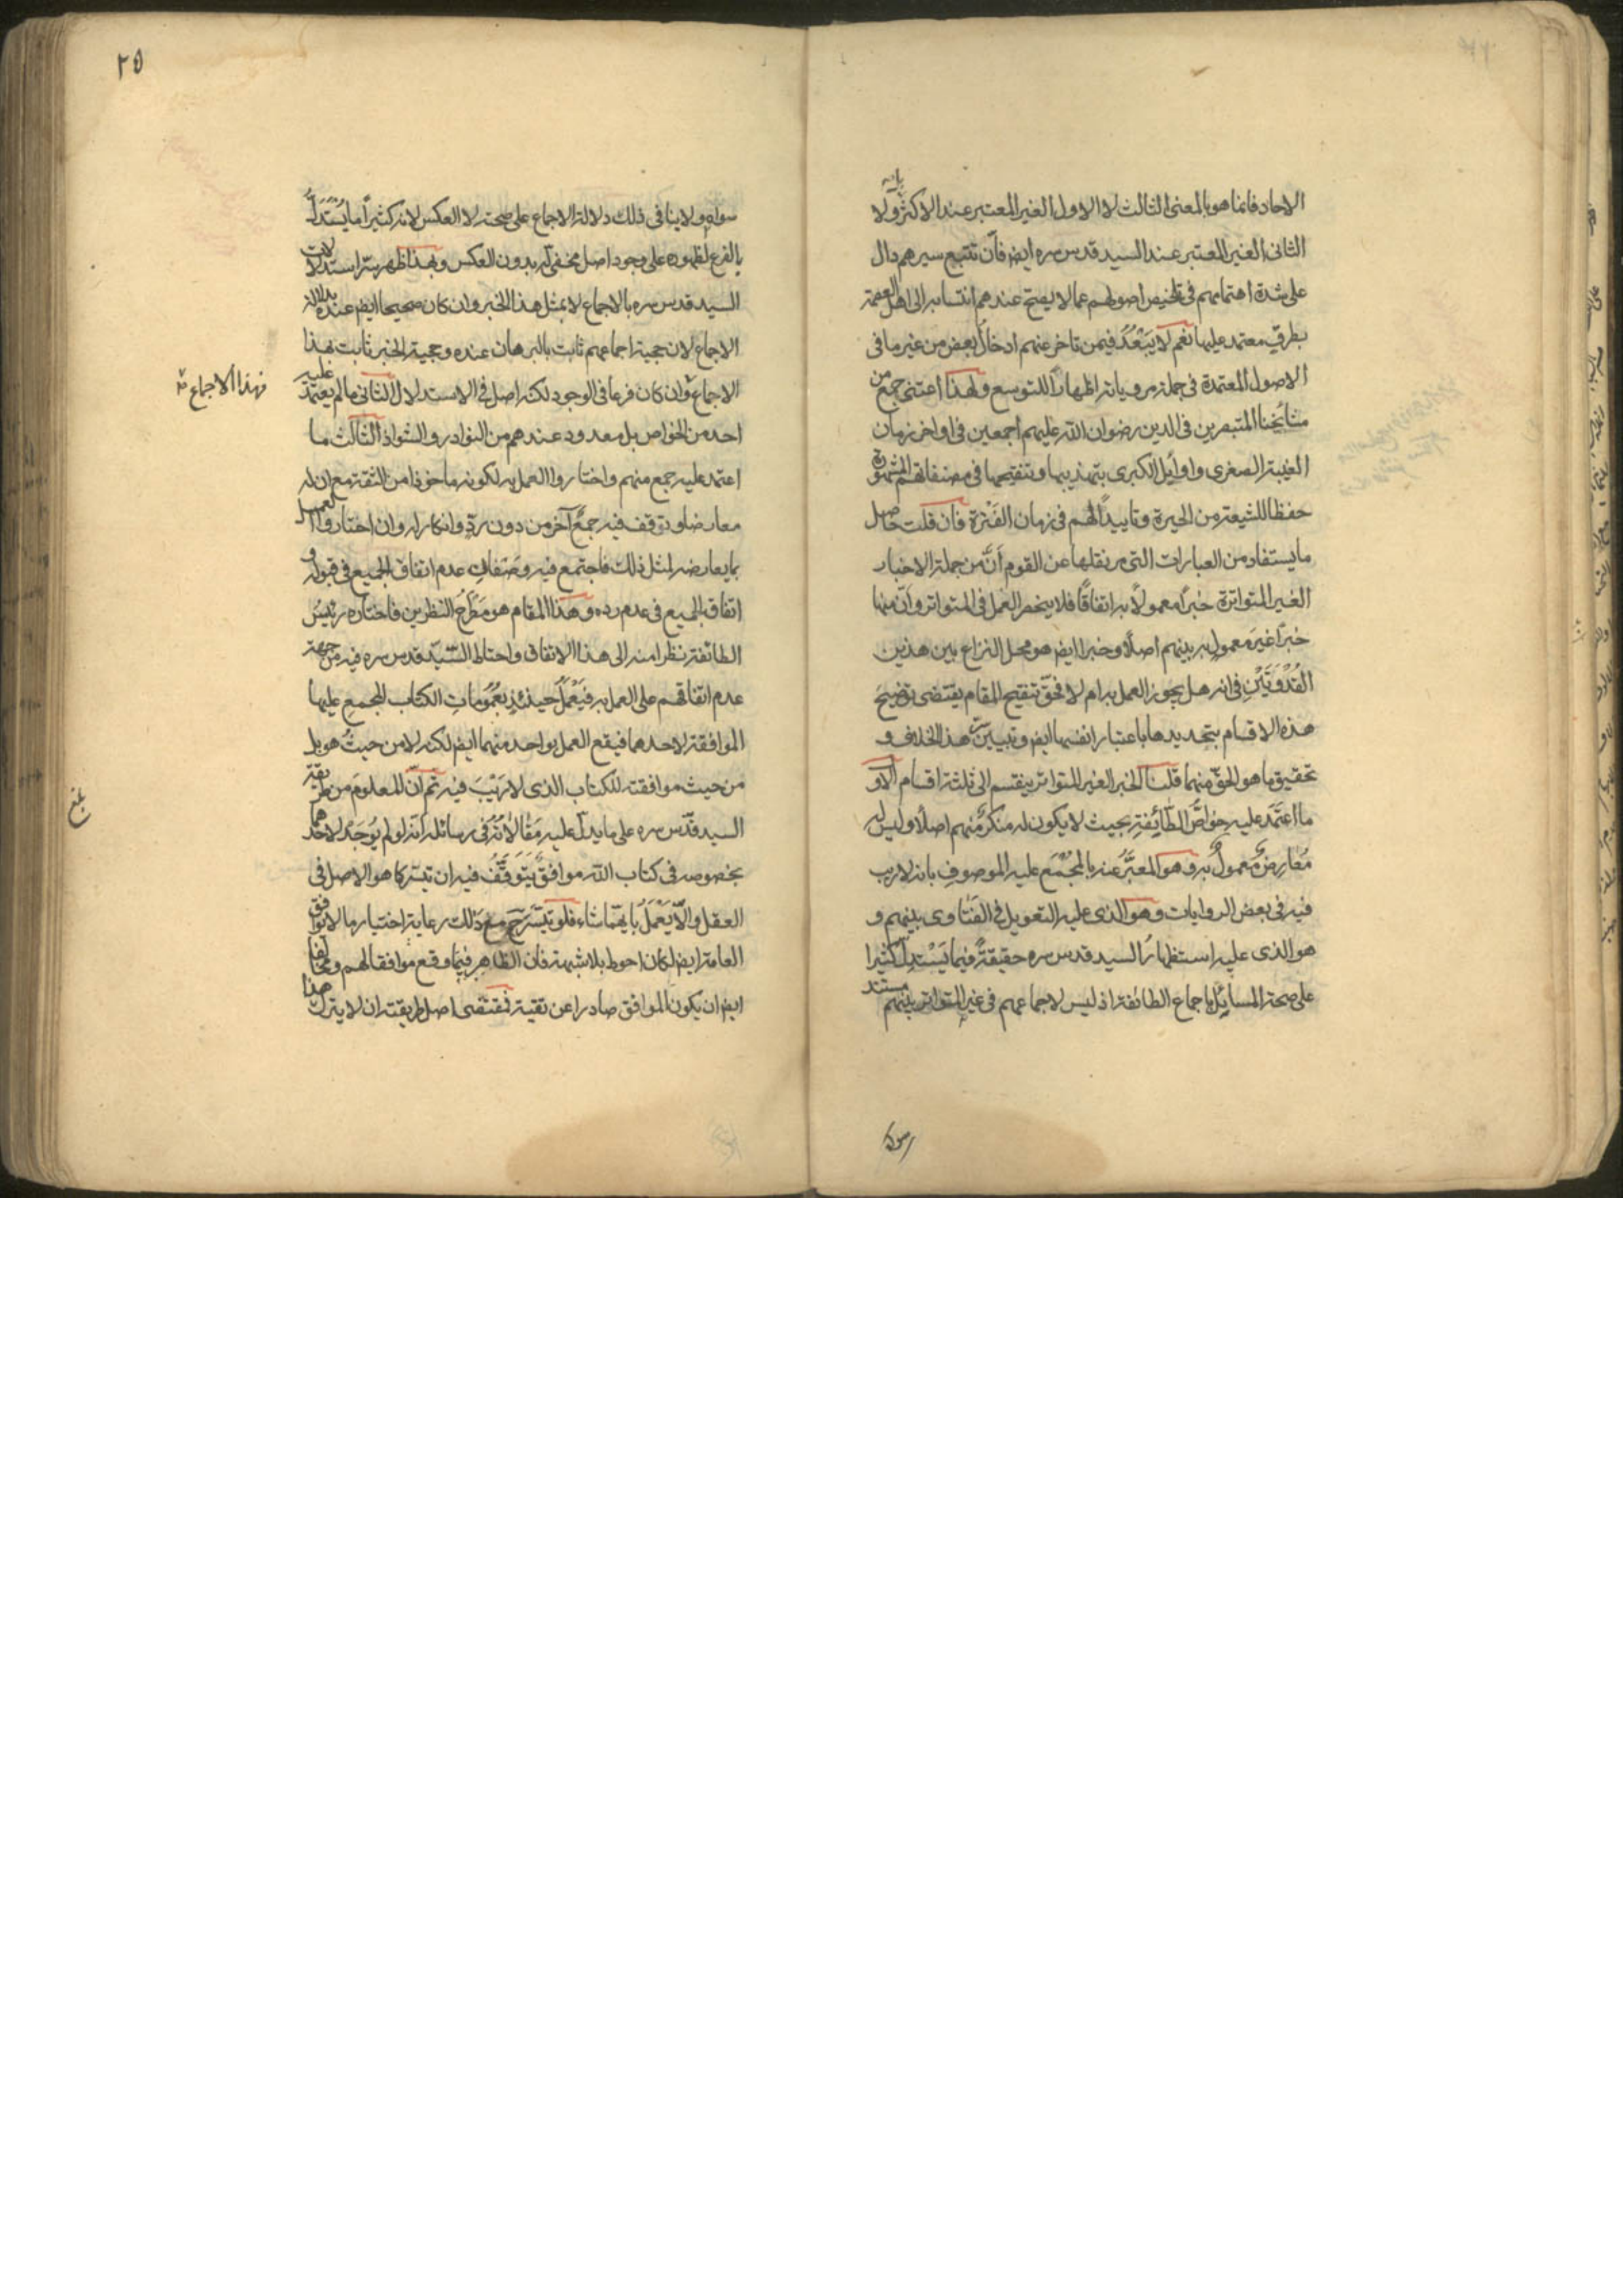 الاحاد فانما هو بالمعنى الثالث لا الاول الغير المعتبر عند الاكثر ولا
الثانى الغير المعتبر عند السيد قدس سره ايضا فان تتبع سيرهم دال
على شدة اهتمامهم فى تلخيص اصولهم عما لا يصح عندهم انتسابه الى اهل العصمة
بطرق معتمد عليها نعم لا يبعد فيمن تاخر عنهم ادخال بعض من غير ما فى
الاصول المعتمدة فى جملة مروياته اظهارا للتوسع ولهذا اعتنى جمع من
مشايخنا المتبصرين فى الدين رضوان الله عليهم اجمعين فى اواخر زمان
الغيبة الصغرى واوائل الكبرى بتهذيبها وتنقيحها فى مصنفاتهم المشهورة
حفظا للشيعة من الحيرة وتاييدا لهم فى زمان الفترة فان قلت حاصل
ما يستفاد من العبارات التى مر نقلها عن القوم ان من جملة الاخبار
الغير المتواترة خبرا معمولا به اتفاقا فلا ينحصر العمل فى المتواتر وان منها
خبرا غير معمول به بينهم اصلا وخبرا ايضا هو محل النزاع بين هذين
القدوتين فى انه هل يجوز العمل به ام لا فحق تنقيح المقام يقتضى توضيح
هذه الاقسام بتحديدها باعتبار انفسها ايضا وتبيين هذا الخلاف و
تحقيق ما هو الحق منهما قلنا الخبر الغير المتواتر ينقسم الى ثلثة اقسام الاول
ما اعتمد عليه خواص الطائفة بحيث لا يكون له منكر منهم اصلا وليس له
معارض معمول به وهو المعبر عنه بالمجمع عليه الموصوف بانه لا ريب
فيه فى بعض الروايات وهو الذى عليه التعويل فى الفتاوى بينهم و
هو الذى عليه استظهار السيد قدس سره حقيقة فيما يستدل كثيرا
على صحة المسايل باجماع الطائفة اذ ليس لاجماعهم فى غير المتواتر بينهم مستند
سواه
٢٥
سواه ولا ينافى ذلك دلالة الاجماع على صحته لا العكس لانه كثيرا ما يستدل
بالفرع لظهوره على وجود اصل مخفى له بدون العكس وبهذا ظهر سر استدلالات
السيد قدس سره بالاجماع لا بمثل هذا الخبر وان كان صحيحا ايضا عنده بدلالة
الاجماع لان حجية اجماعهم ثابت بالبرهان عنده وحجية الخبر ثابت بهذا
الاجماع وان كان فرعا فى الوجود لكنه اصل فى الاستدلال الثانى ما لم يعتمد عليه
فهذا الاجماع
احد من الخواص بل معدود عندهم من النوادر والشواذ الثالث ما
اعتمد عليه جمع منهم واختاروا العمل به لكونه ماخوذا من الثقة مع ان له
معارضا وتوقف فيه جمع آخر من دون رد وانكار له وان اختاروا العمل
بما يعارضه لمثل ذلك فاجتمع فيه وصفان عدم اتفاق الجميع فى قبوله و
اتفاق الجميع فى عدم رده وهذا المقام هو مطرح النظرين فاختاره رئيس
الطائفة نظرا منه الى هذا الاتفاق واحتاط السيد قدس سره فيه من جهة
عدم اتفاقهم على العمل به فيعمل حينئذ بعمومات الكتاب المجمع عليها
الموافقة لاحدهما فيقع العمل بواحد منهما ايضا لكنه لا من حيث هو بل
من حيث موافقته للكتاب الذى لا ريب فيه ثم ان المعلوم من طريقة
السيد قدس سره على ما يدل عليه مقالاته فى رسائله انه لو لم يوجد لاحدهما
بخصوصه فى كتاب الله موافق يتوقف فيه ان تيسر كما هو الاصل فى
العقل والا يعمل بايهما شاء فلو تيسر مع ذلك رعاية اختيار ما لا توافق
العامة ايضا لكان احوط بلا شبهة فان الظاهر فيما وقع موافقا لهم ومخالفا
ايضا ان يكون الموافق صادرا عن تقية فمقتضى اصل طريقته ان لا يترك هذا
بلغ